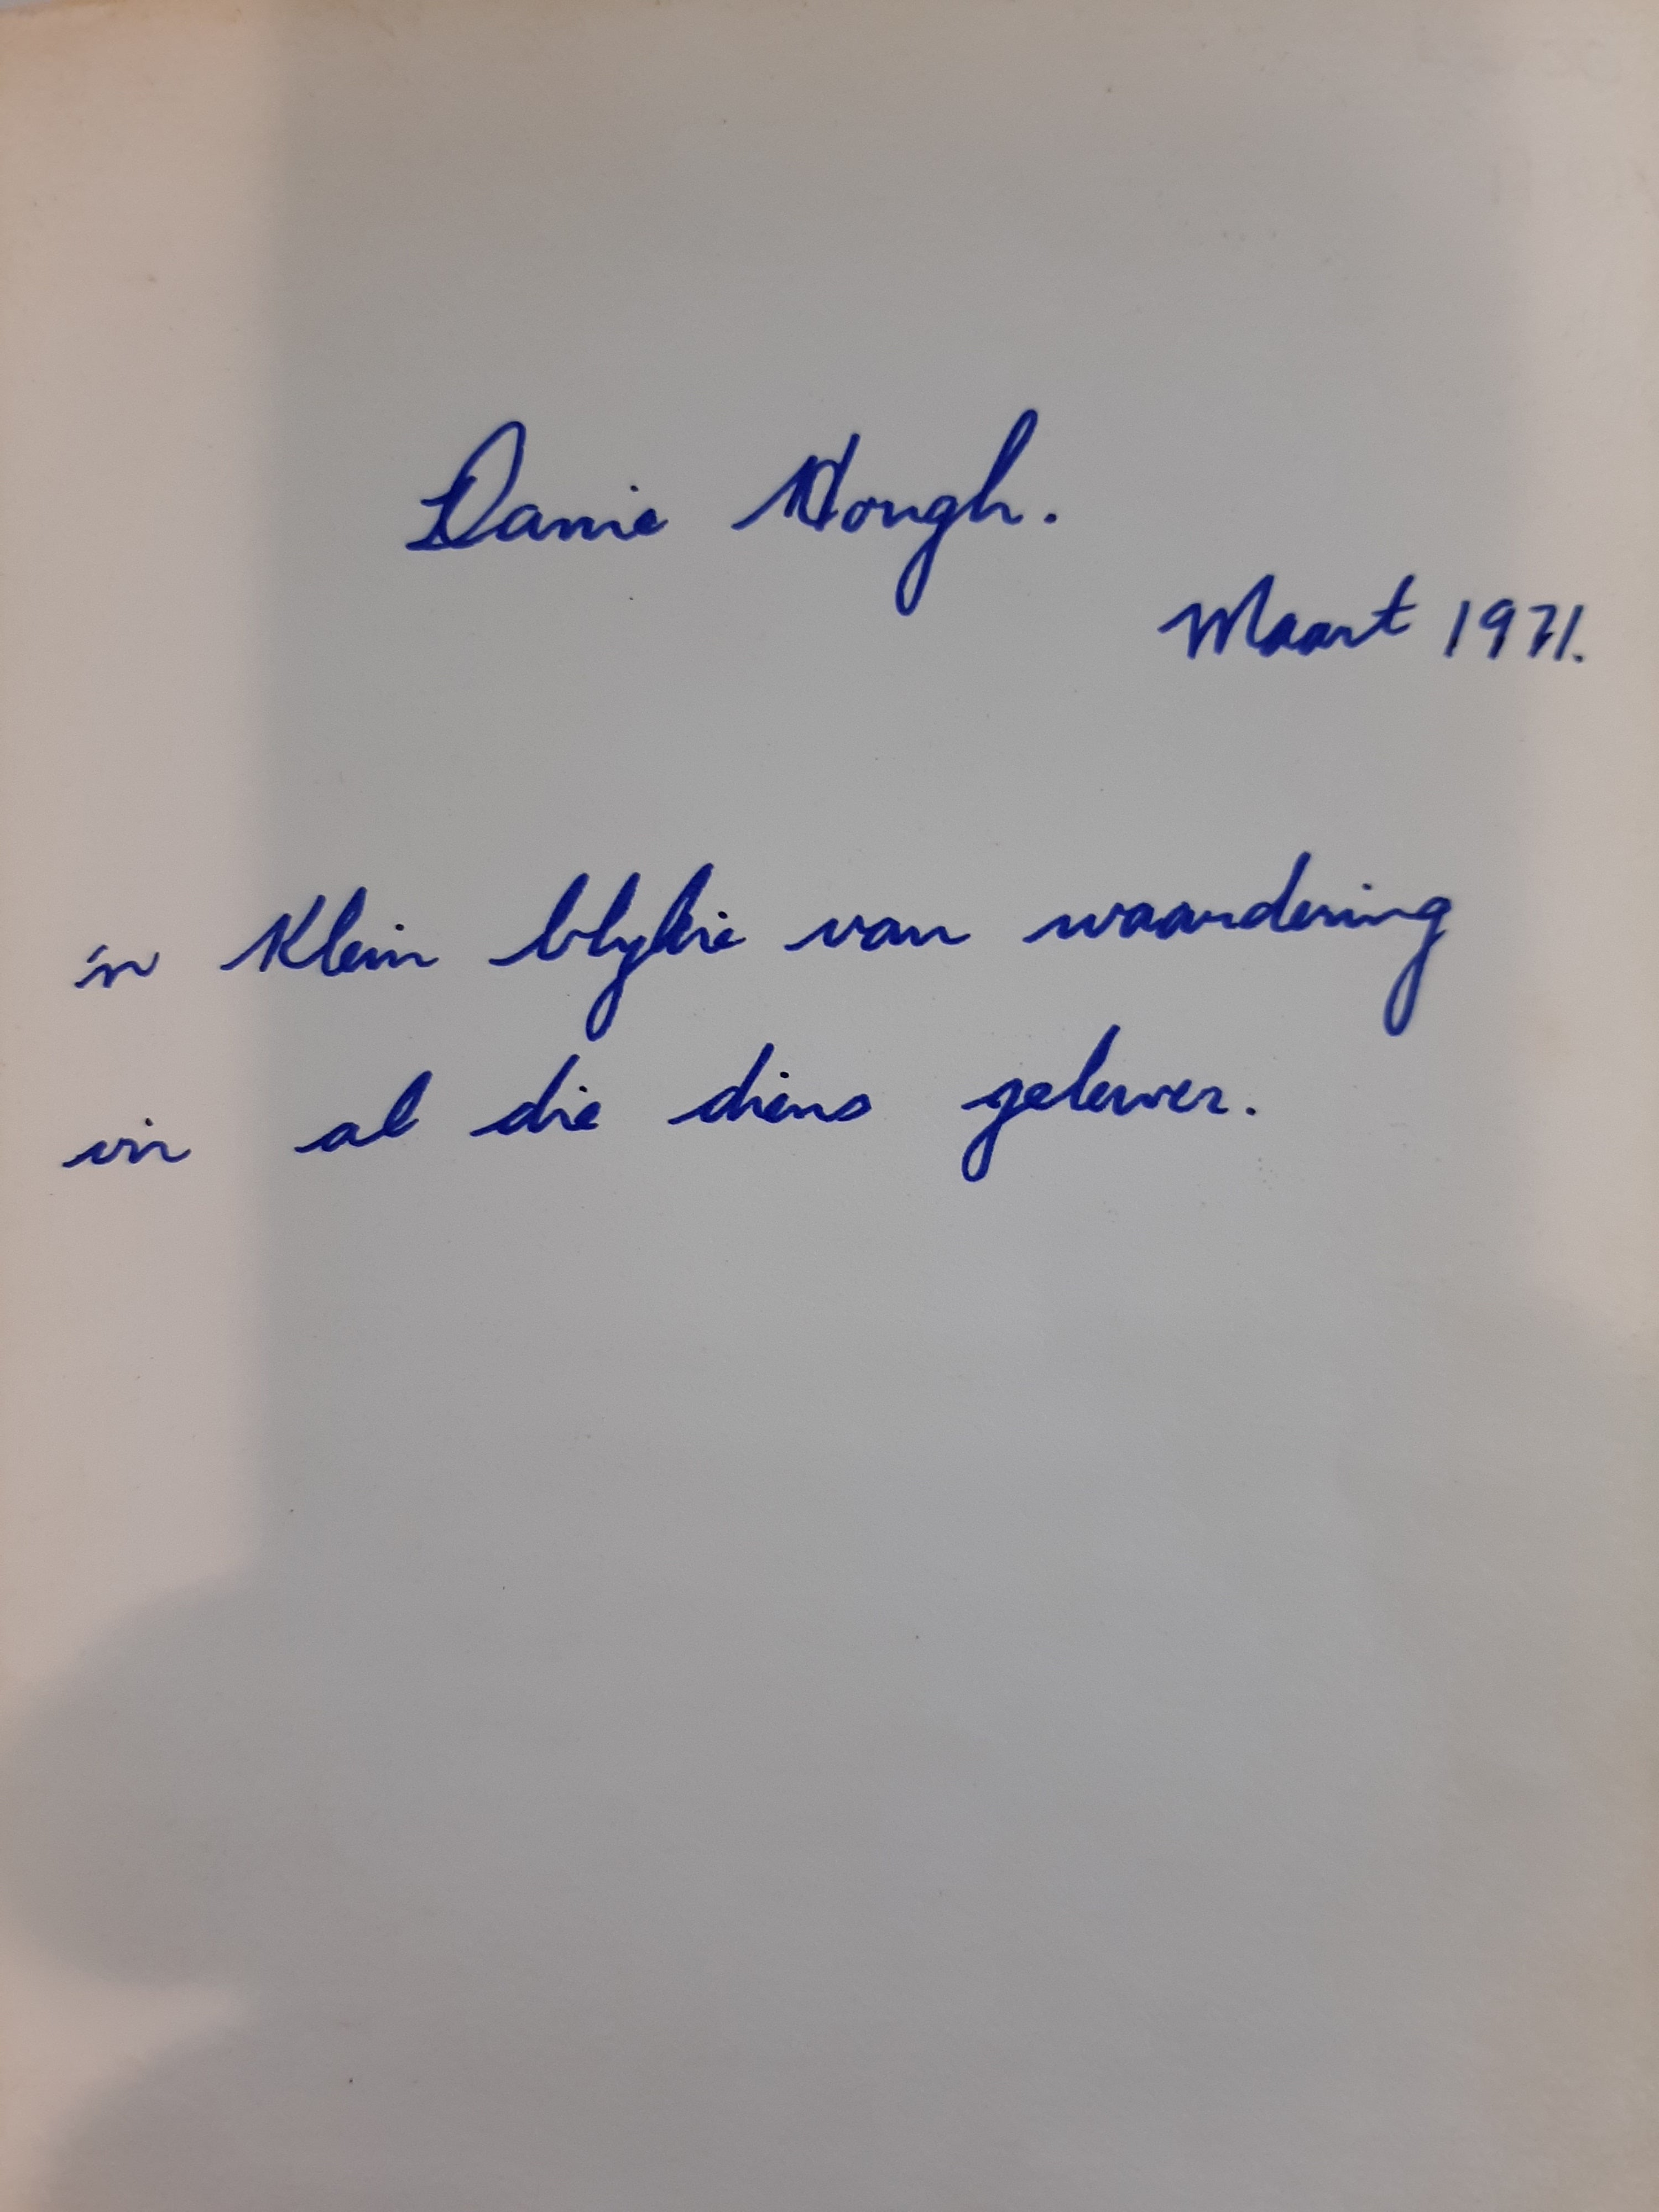 Danie Hough.
Maart 1971.
'n Klein blykie van waardering
vir al die diens gelewer.